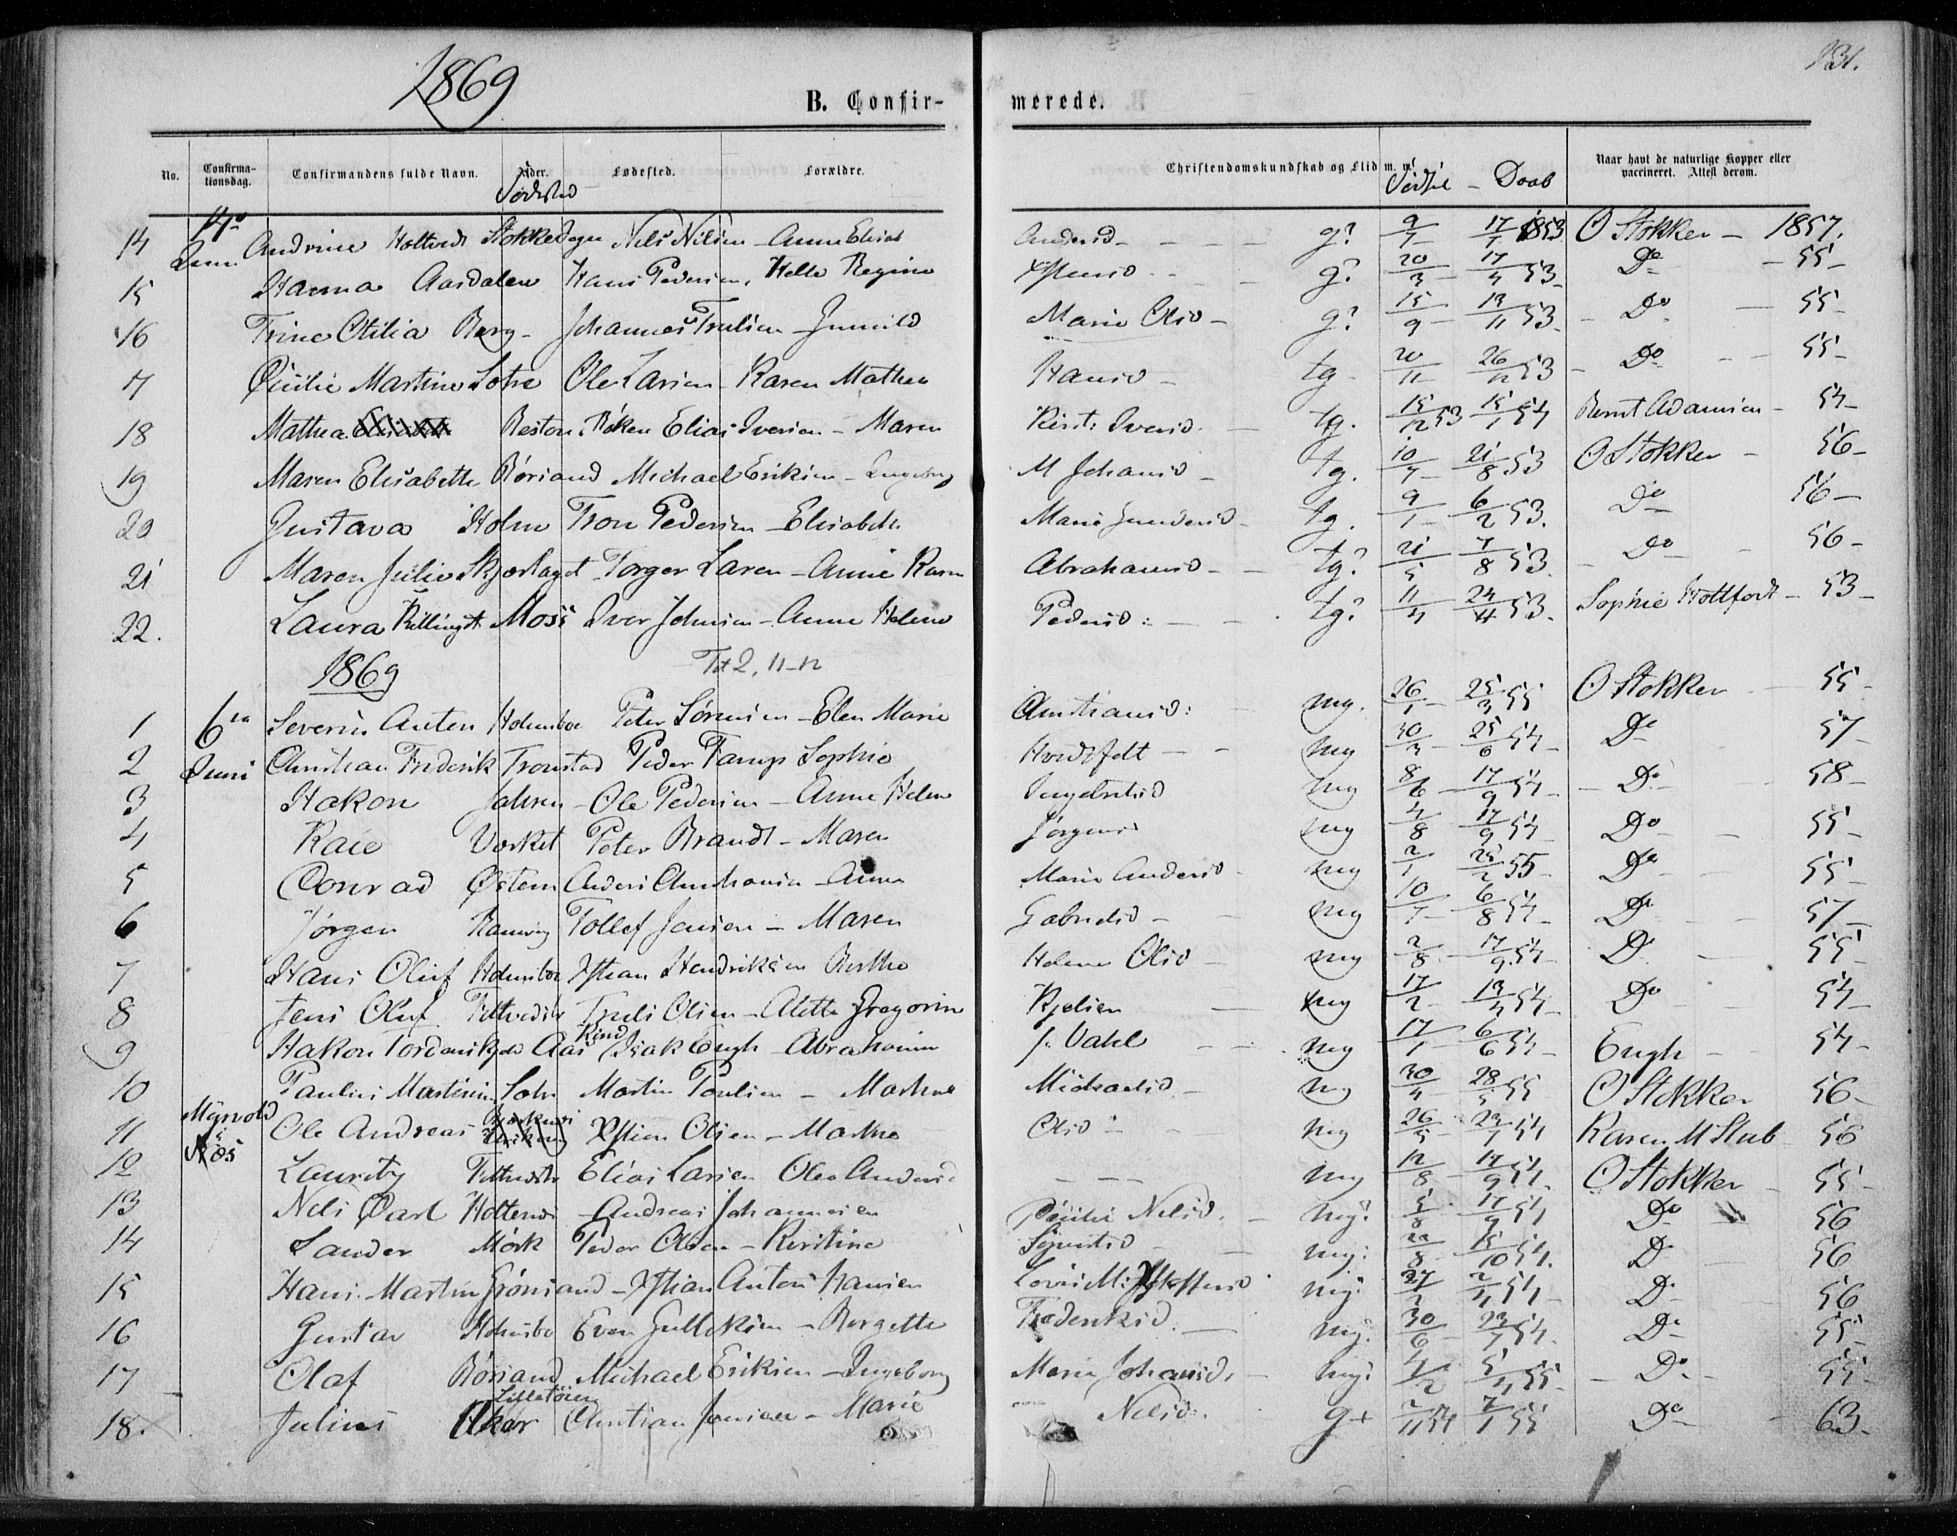 1869
131.
B. Confir- merede.
No. Confirma-tionsdag. Confirmandens fulde Navn. Alder. Fødested. Forældre. Christendomskundskab og Flid m. v. Naar havt de naturlige Kopper eller vaccineret. Attest derom.
Fødested Fødsel - Daab
14 Juni Andrine Holtvedt Stokke Nels Nilsen - Anne Elias Andersd - g? 9/7 17/7 1853 O Stokker - 1857.
15 Hanna Aasdalen Hans Pedersen, Helle Regine g? 20/3 - 17/4 53 - Do - 55 -
16 Trine Otilia Berg - Johannes Trulsen - Gunild Marie Olsd - g? 15/9 - 13/11 53 - Do - 55 -
17 Cicilie Martine Sohe Ole Larsen - Karen Mathea Hansd - tg - 20/11 26/12 53 - Do - 55 -
18 Mathea Reston, Røken Elias Iversen - Maren Kirst. Iversd. tg. 15/12 53 15/1 54 Bernt Adamsen - 54 -
19 Maren Elisabeth Rörsand Michael Eriksen - Ingeborg M Johansd - tg. 10/7 - 21/8 53 O Stokker - 56 -
20 Gustava Holm Tron Pedersen - Elisabeth Marie Gundersd - tg. 9/1 - 6/2 53. Do 56 -
21 Maren Julie Skjærhaget Torger Larsen - Anne Karen Abrahamsd - tg? 21/5 7/8 53. - Do - 56 -
22. Laura Killingst Moss Iver Johnsen - Anne Helene Pedersd: - tg? 11/4 - 24/4 53. Sophie Holtfodt - 53 -
1869 Tr 2, 11-12
1 6te Severin Anton Holmsbo Peter Sörensen - Elen Marie Christiansd: my. 26/1 - 25/3 55 O Stokker - 55 -
2 Juni Christian Frederik Tronstad Peder Tamp Sophie Hordsfelt - my 30/3 - 25/6 54 - Do 57 -
3 Hakon Jahren - Ole Pedersen - Anne Helene Ingebretsd my 8/6 - 17/9 54 - Do - 58 -
4 Kaie Værket Peter Brandt - Maren Jørgens my 4/8 17/9 54 - Do - 55 -
5 Conrad Østern Anders Christiansen - Anna Marie Andersd - my 2/1 25/2 55 - Do - 55 -
6 Jörgen Ramvig Tollef Jensen - Maren Gabrielsd - my 10/7 - 6/8 54 - Do 57 -
7 Hans Oluf Holmsbo Xstian Hendriksen Berthe Helene Olsd - my 2/8 - 17/9 54 - Do - 55 -
8 Jens Oluf Tofteodsk Truls Olsen - Alette Gregorine Kjelsen - my 17/2 - 13/4 54 - Do - 54 -
9 Hakon Tordenskjold Aas Isak Engh - Abrahamine f. Vahl - my 17/1 - 6/6 54 - Engh - 54 -
10 Paulus Martinius Sohe Martin Poulsen - Marthea Michaelsd - my 30/4 28/5 55 O Stokker 56 -
Myrvold i Aas
11 Ole Andreas Xstian Olsen - Marthe Olsd - my 26/5 - 23/7 54 Karen M Stub 56
12 Lauritz Elias Larsen Olea Andersd - my 12/8 - 17/9 54. O Stokker - 55 -
13 Nels Carl Holtenes - Andreas Johannesen Cicilie Nelsd. - my? 5/8 17/9 54 Do - 56
14 Sander Mörk Peder Olsen - Kirstine Syvertsd - my? 22/8 - 15/10 54. Do 56
15 Hans Martin Grönsand - Xstian Anton Hansen Lovise M Xstoffersd my? 2/11 54 - Do - 56
16 Gustav Holmsbo Even Gulliksen - Borgette Frederiksd. my? 30/6 23/7 54. Do - 55 -
17 Olaf Rörsand Michael Eriksen - Ingeborg Maren Johansd. my? 4/2 5/4 55 - Do - 55 -
18. Julius Lilletöien Christian Jonsen - Marie Nelsd. g + 2/11 54 7/1 55 Do - 63 -